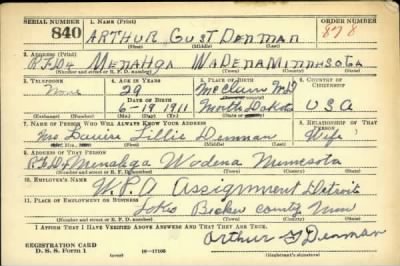 SERIAL NUMBER 1. NAME (Print) ORDER NUMBER
840 ARTHUR GUST DENMAN 878
(First) (Middle) (Last)
2. ADDRESS (Print)
R.F.D.4 MENAHGA WADENA MINNESOTA
(Number and street or R. F. D. number) (Town) (County) (State)
3. TELEPHONE 4. AGE IN YEARS 5. PLACE OF BIRTH 6. COUNTRY OF CITIZENSHIP
None 29 McClure
DATE OF BIRTH (Town or county)
6-19-1911 North Dakota U S A
(Exchange) (No.) (Mo.) (Day) (Yr.) (State or country)
7. NAME OF PERSON WHO WILL ALWAYS KNOW YOUR ADDRESS 8. RELATIONSHIP OF THAT PERSON
Mrs Lillie Denman Wife
(Mr., Mrs., Miss) (First) (Middle) (Last)
9. ADDRESS OF THAT PERSON
R.F.D.4 Menahga Wadena Minnesota
(Number and street or R. F. D. number) (Town) (County) (State)
10. EMPLOYER'S NAME
W.P.A Assignment Detroit
11. PLACE OF EMPLOYMENT OR BUSINESS
Lakes Becker county Minn
(Number and street or R. F. D. number) (Town) (County) (State)
I AFFIRM THAT I HAVE VERIFIED ABOVE ANSWERS AND THAT THEY ARE TRUE.
REGISTRATION CARD
D. S. S. Form 1 16—17105 Arthur G Denman
(Registrant's signature)